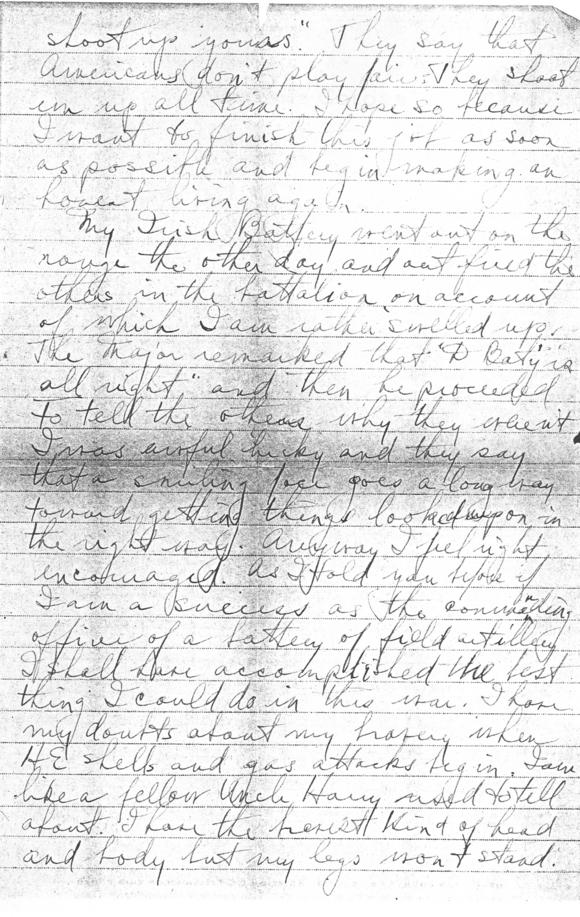 shoot up yours." They say that
Americans don't play fair. They shoot
em up all time. I hope so because
I want to finish this job as soon
as possible and begin making an
honest living again.
My Irish Battery went out on the
range the other day and out fired the
others in the battalion on account
of which I am rather swelled up.
The Major remarked that "D Bat'y is
all right" and then he proceeded
to tell the others why they weren't
I was awful lucky and they say
that a smiling face goes a long way
toward getting things looked upon in
the right way. Anyway I feel right
encouraged. As I told you before if
I am a success as the commanding
officer of a battery of field artillery
I shall have accomplished the best
thing I could do in this war. I have
my doubts about my bravery when
HE shells and gas attacks begin. I am
like a fellow Uncle Harry used to tell
about. I have the bravest kind of head
and body but my legs won't stand.